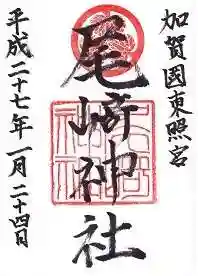 加賀國東照宮
尾崎神社
平成二十七年一月二十四日